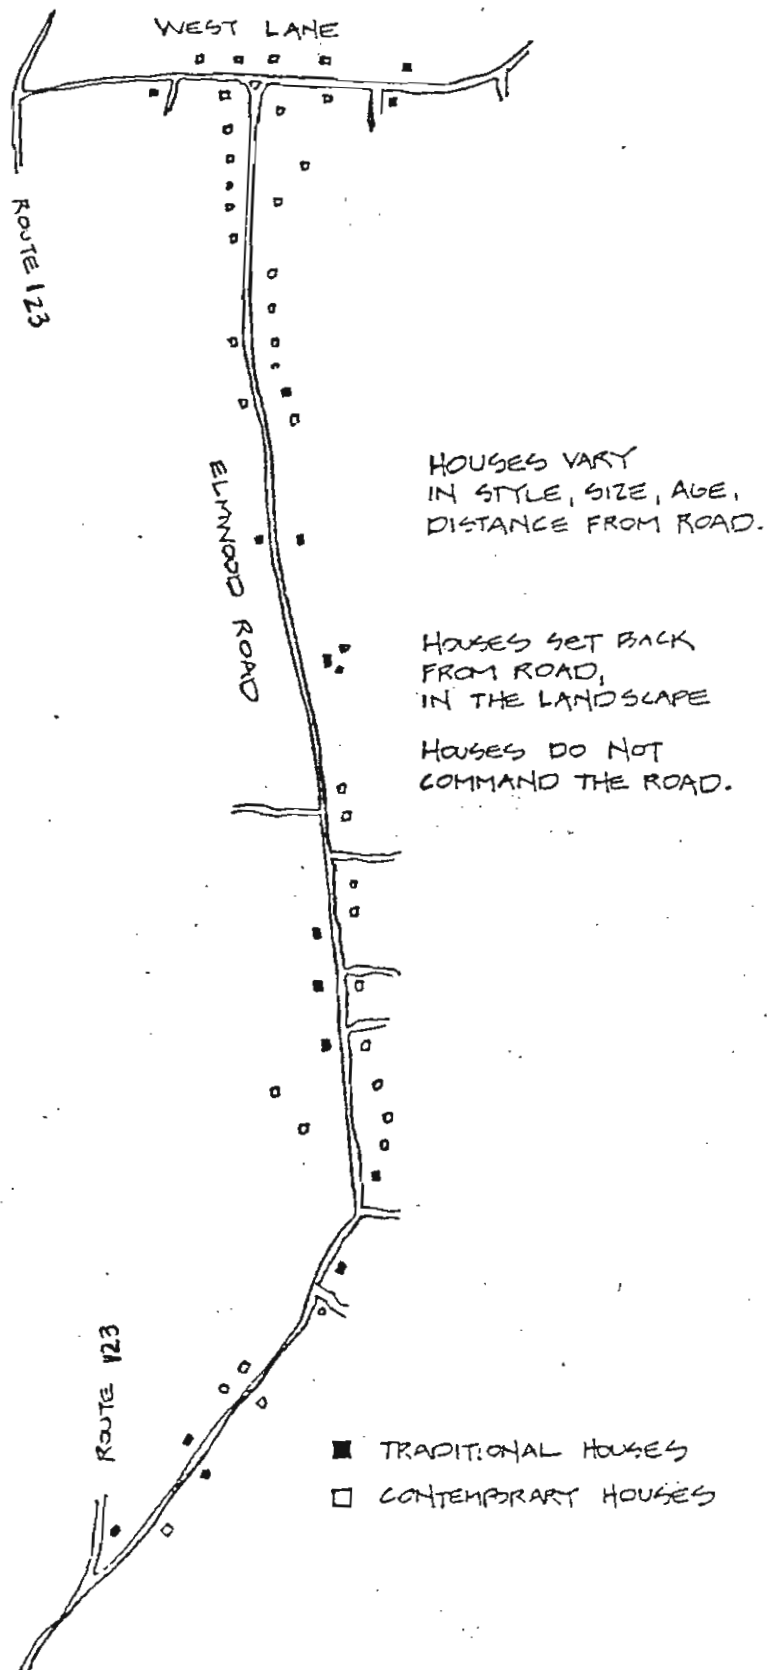 WEST LANE
ROUTE 123
ELMWOOD ROAD
HOUSES VARY
IN STYLE, SIZE, AGE,
DISTANCE FROM ROAD.
HOUSES SET BACK
FROM ROAD,
IN THE LANDSCAPE
HOUSES DO NOT
COMMAND THE ROAD.
ROUTE 123
TRADITIONAL HOUSES
CONTEMPORARY HOUSES